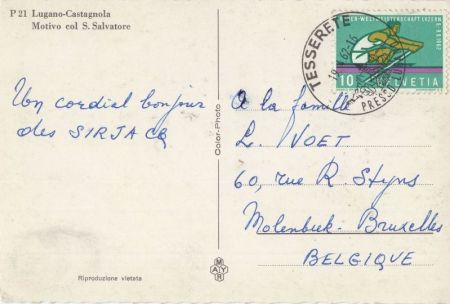 P 21 Lugano-Castagnola
Motivo col S. Salvatore
Un cordial bonjour
des SIRJACQ
Color-Photo
RUDER-WELTMEISTERSCHAFT LUZERN
1962
10 HELVETIA
TESSERETE
À la famille
L. NOET
60, rue R. Stijns
Molenbeek-Bruxelles
BELGIQUE
Riproduzione vietata
MAYR